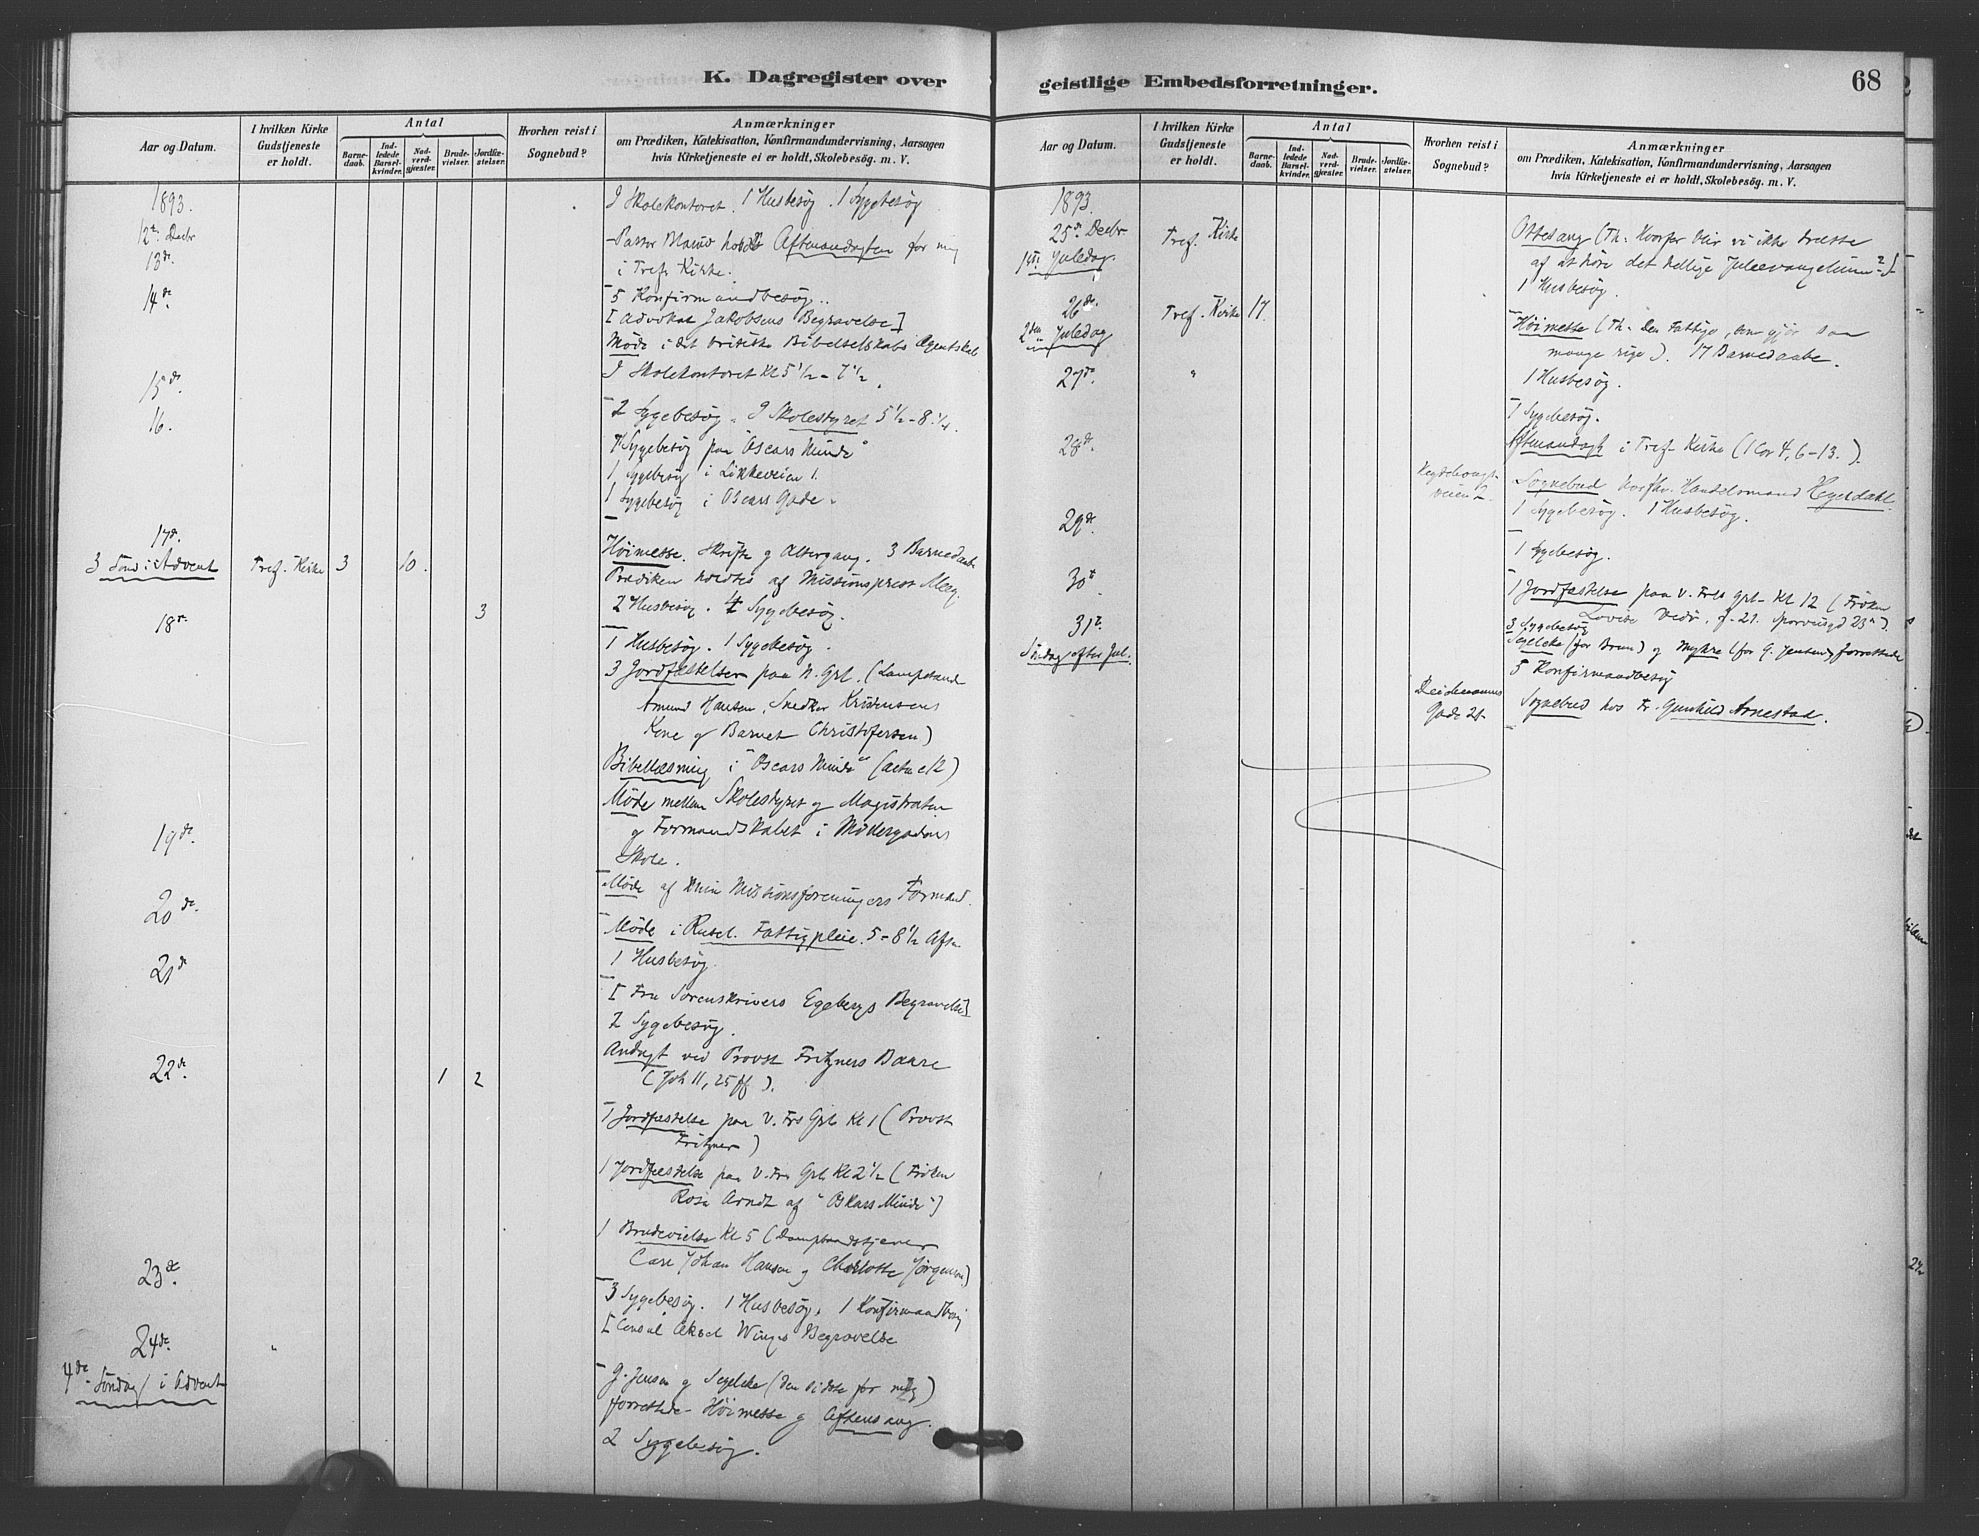 K. Dagregister over
Aar og Datum.
I hvilken Kirke Gudstjeneste er holdt.
Antal
Barnedaab.
Indledede Barselkvinder.
Nadverdgjæster.
Brudevielser.
Jordfæstelser.
Hvorhen reist i Sognebud?
Anmærkninger
om Prædiken, Katekisation, Konfirmandundervisning, Aarsagen
hvis Kirketjeneste ei er holdt, Skolebesög. m. V.
1893.
I Skolekontoret. 1 Husbesøg. 1 Sygebesøg
12te Decbr
13de
Pastor holdt Aftenandagten for mig
i Tref. Kirke.
14de
5 Konfirmandbesøg..
[Advokat Jakobsens Begravelse]
Møde i det britiske Bibelselskabs Agentskab
I Skolekontoret Kl 5 1/2 - 7 1/2.
15de
2 Sygebesøg. I Skolestyret 5 1/2 - 8 1/4.
16.
1 Sygebesøg paa "Oscars Minde"
1 Sygebesøg i Løkkeveien 1.
1 Sygebesøg i Oscars Gade.
17de
3 Sønd i Advent Tref. Kirke 3 10.
Høimesse. Skrifte og Altergang. 3 Barnedaabe
Prædiken holdtes af Missionsprest
2 Husbesøg. 4 Sygebesøg.
18de 3
1 Husbesøg. 1 Sygebesøg.
3 Jordfæstelser paa N. Grl. (
Amund Hansen, Snedker Kristensens
Kone og Barnet Christofersen)
Bibellæsning i "Oscars Minde" (
Møde mellem Skolestyret og Magistraten
og Formandskabet i Møllergadens
Skole.
19de
Møde af Missionsforeningers Formænd.
20de
Møde i Fattigpleie. 5 - 8 1/2 Aften
1 Husbesøg.
21de
[Fru Sorenskriver Egebergs Begravelse]
2 Sygebesøg.
Andagt ved Provst Fritzners Baare
(Joh 11, 25 ff).
22de 1 2
1 Jordfæstelse paa V. Frs Grl. Kl 1 (Provst
Fritzner)
1 Jordfæstelse paa V. Frs Grl. Kl 2 1/2 (Frøken
Rosa Arndt af "Oskars Minde")
1 Brudevielse Kl 5 (
Carl Johan Hansen og Charlotte Jørgensen)
23de
3 Sygebesøg. 1 Husbesøg. 1 Konfirmandbesøg
[Consul Aksel Winges Begravelse
24de "
4de Søndag i Advent
G. Jensen og Segelcke (den sidste for mig)
forrettede Høimesse og Aftensang.
2 Sygebesøg.
geistlige Embedsforretninger. 68
Aar og Datum.
I hvilken Kirke Gudstjeneste er holdt.
Antal
Barnedaab.
Indledede Barselkvinder.
Nadverdgjæster.
Brudevielser.
Jordfæstelser.
Hvorhen reist i Sognebud?
Anmærkninger
om Prædiken, Katekisation, Konfirmandundervisning, Aarsagen
hvis Kirketjeneste ei er holdt, Skolebesög. m. V.
1893.
25de Decbr Tref. Kirke
1ste Juledag.
Ottesang (Th: Hvorfor blir vi ikke trætte
af at høre det hellige Juleevangelium?)
1 Husbesøg.
26de Tref. Kirke 17.
2den Juledag
Høimesse (Th: Den Fattige, som gjør saa
mange rige). 17 Barnedaabe.
27de "
1 Husbesøg.
1 Sygebesøg.
Aftenandagt i Tref. Kirke (1 Cor 4, 6-13.)
28de
veien 2.
Sognebud hos Handelsmand Hegerdahl.
1 Sygebesøg. 1 Husbesøg.
29de
1 Sygebesøg.
30te
1 Jordfæstelse paa V. Frs Grl. Kl 12 (Frøken
Lovise
31te
Søndag efter Jul.
3 Sygebesøg
Segelcke (for Bruun) og Myhre (for G. Jensen) forrettede
5 Konfirmandbesøg
Deichmanns
Gade 21.
Sognebud hos Fr. Gunhild Arnestad.